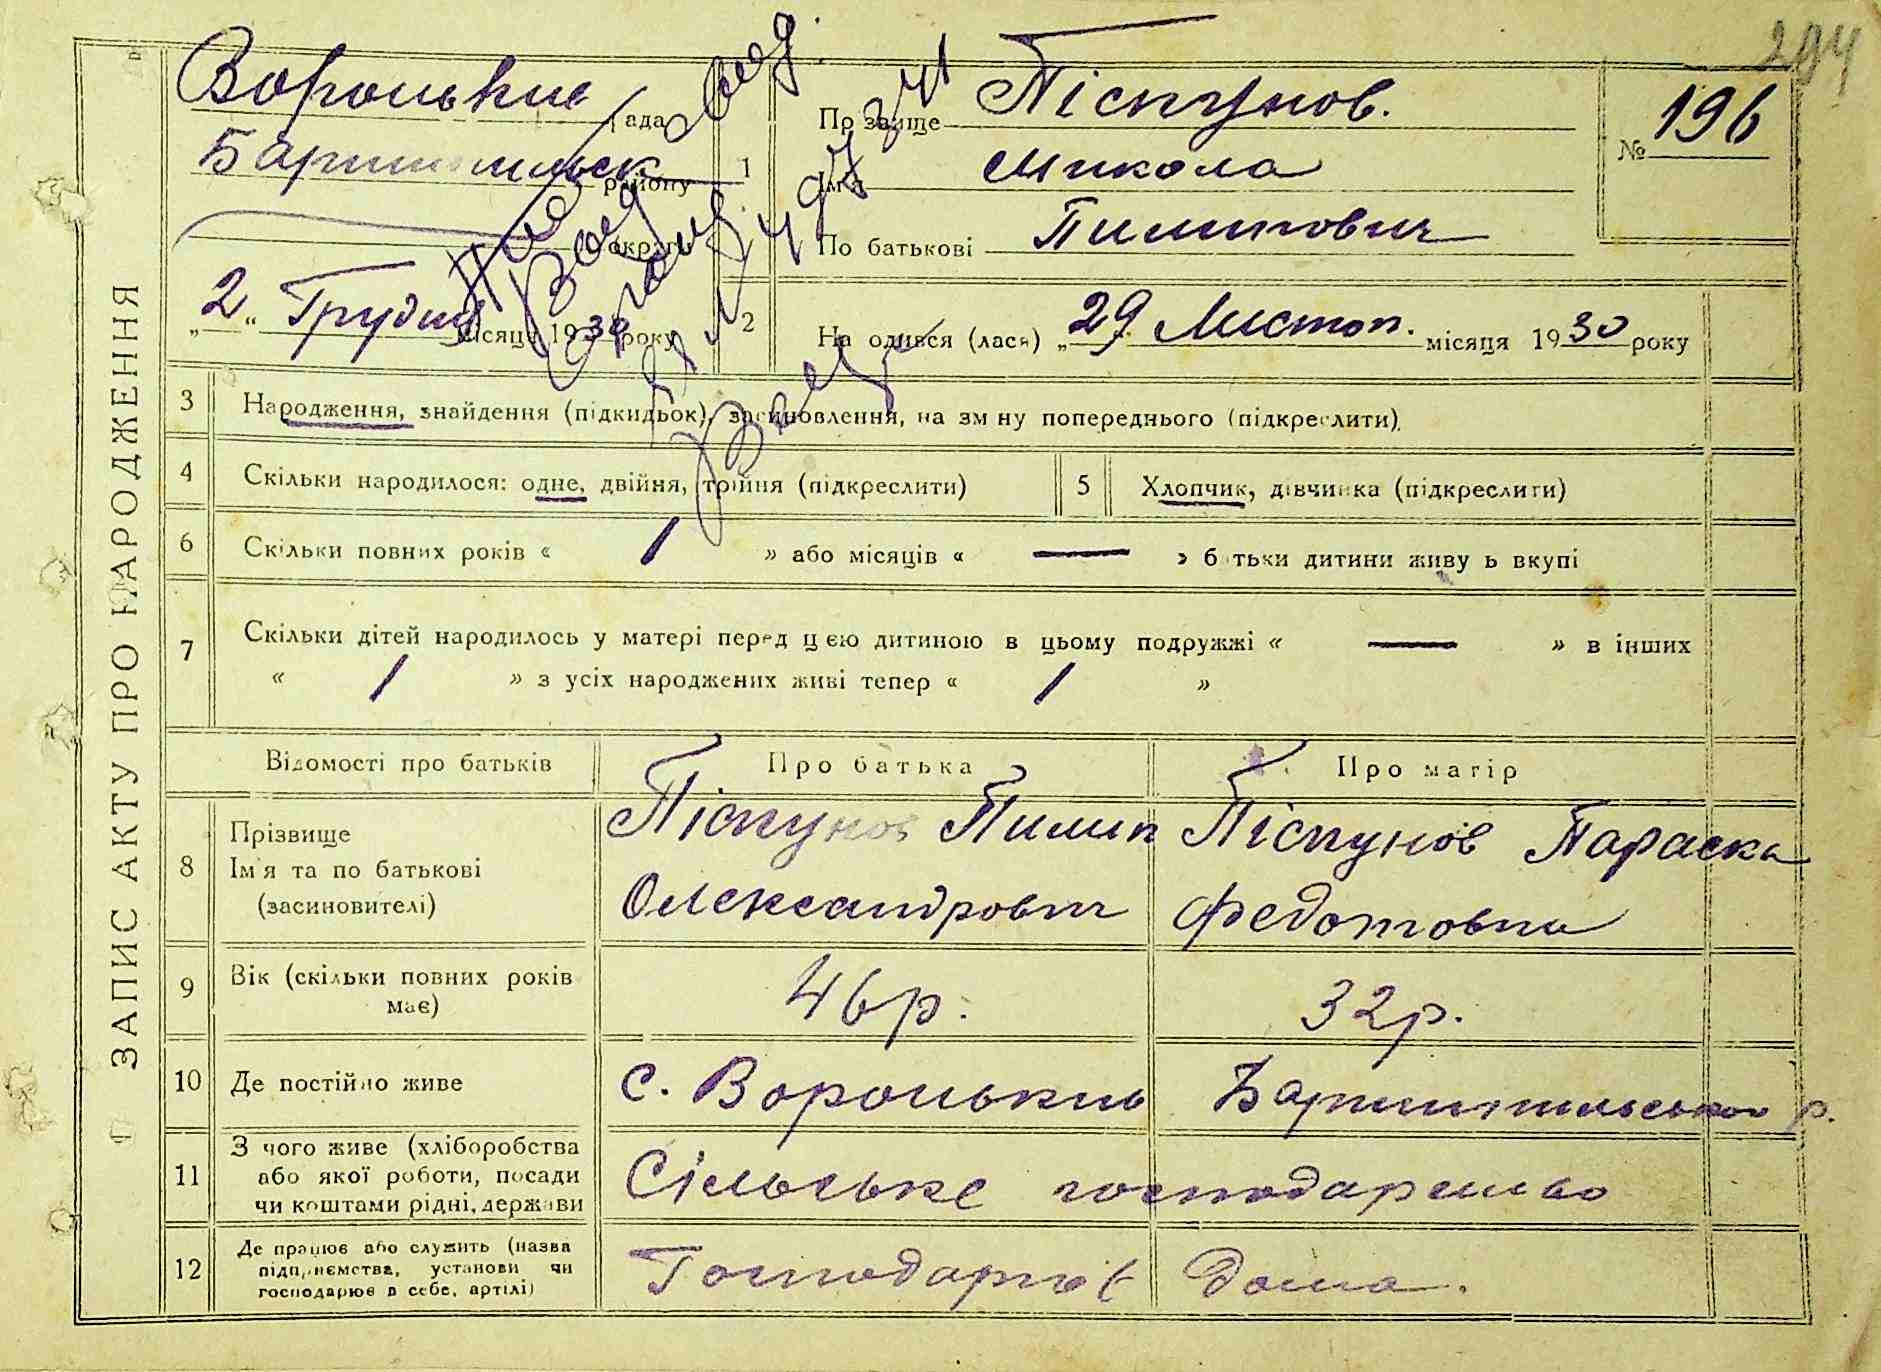 294
Вороньківс рада
Баришпільськ району
округи
„2“ Грудня місяця 1930 року
ЗАПИС АКТУ ПРО НАРОДЖЕННЯ
1 Прізвище Піскунов.
№ 196
Ім'я Микола
По батькові Пилипович
2 Народився (лася) „29“ Листоп. місяця 1930 року
3 Народження, знайдення (підкидьок), засиновлення, на зміну попереднього (підкреслити)
4 Скільки народилося: одне, двійня, трійня (підкреслити)
5 Хлопчик, дівчинка (підкреслити)
6 Скільки повних років « 1 » або місяців « — » батьки дитини живуть вкупі
7 Скільки дітей народилось у матері перед цією дитиною в цьому подружжі « — » в інших
« 1 » з усіх народжених живі тепер « 1 »
Відомості про батьків Про батька Про матір
8 Прізвище Ім'я та по батькові (засиновителі)
Піскунов Пилип Піскунов Параска
Олександрович Федотовна
9 Вік (скільки повних років має) 46 р. 32 р.
10 Де постійно живе с. Вороньків Баришпільського р.
11 З чого живе (хліборобства
або якої роботи, посади
чи коштами рідні, держави
Сільське господарство
12 Де працює або служить (назва
підприємства, установи чи
господарює в себе, артілі)
Господарює дома.